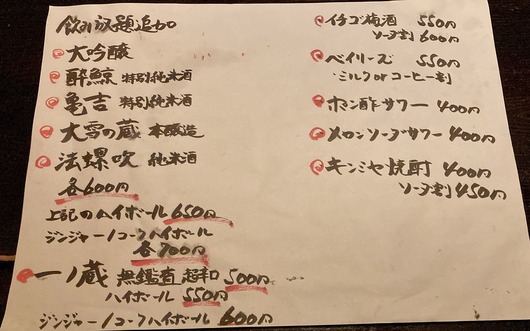 飲み放題追加
大吟醸
酔鯨 特別純米酒
亀吉 特別純米酒
大雪の蔵 本醸造
法螺吹 純米酒
各600円
上記のハイボール 650円
ジンジャー/コークハイボール
各700円
一ノ蔵 無鑑査 超辛 500円
ハイボール 550円
ジンジャー/コークハイボール 600円
イチゴ梅酒 550円
ソーダ割 600円
ベイリーズ 550円
ミルクorコーヒー割
ポン酢サワー 400円
メロンソーダサワー 400円
キンミヤ焼酎 400円
ソーダ割 450円